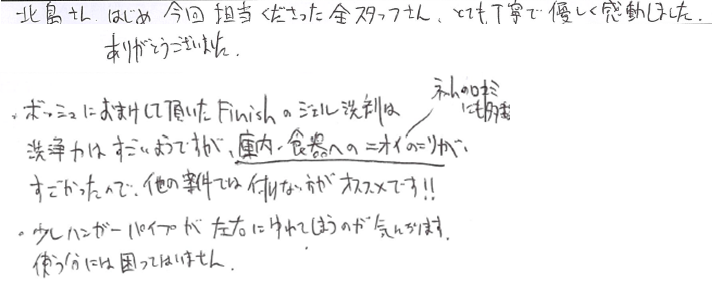 北島さん はじめ 今回 担当くださった 全スタッフさん、とても丁寧で優しく感動しました。
ありがとうございました。
・ボッシュにおまけして頂いたFinishのジェル洗剤は
ネットの口コミ
にも多数
洗浄力はすごいようですが、庫内・食器へのニオイのこりが、
すごかったので、他の案件では付けない方がオススメです!!
・少しハンガーパイプが左右にゆれてしまうのが気になります。
使う分には困ってはいません。